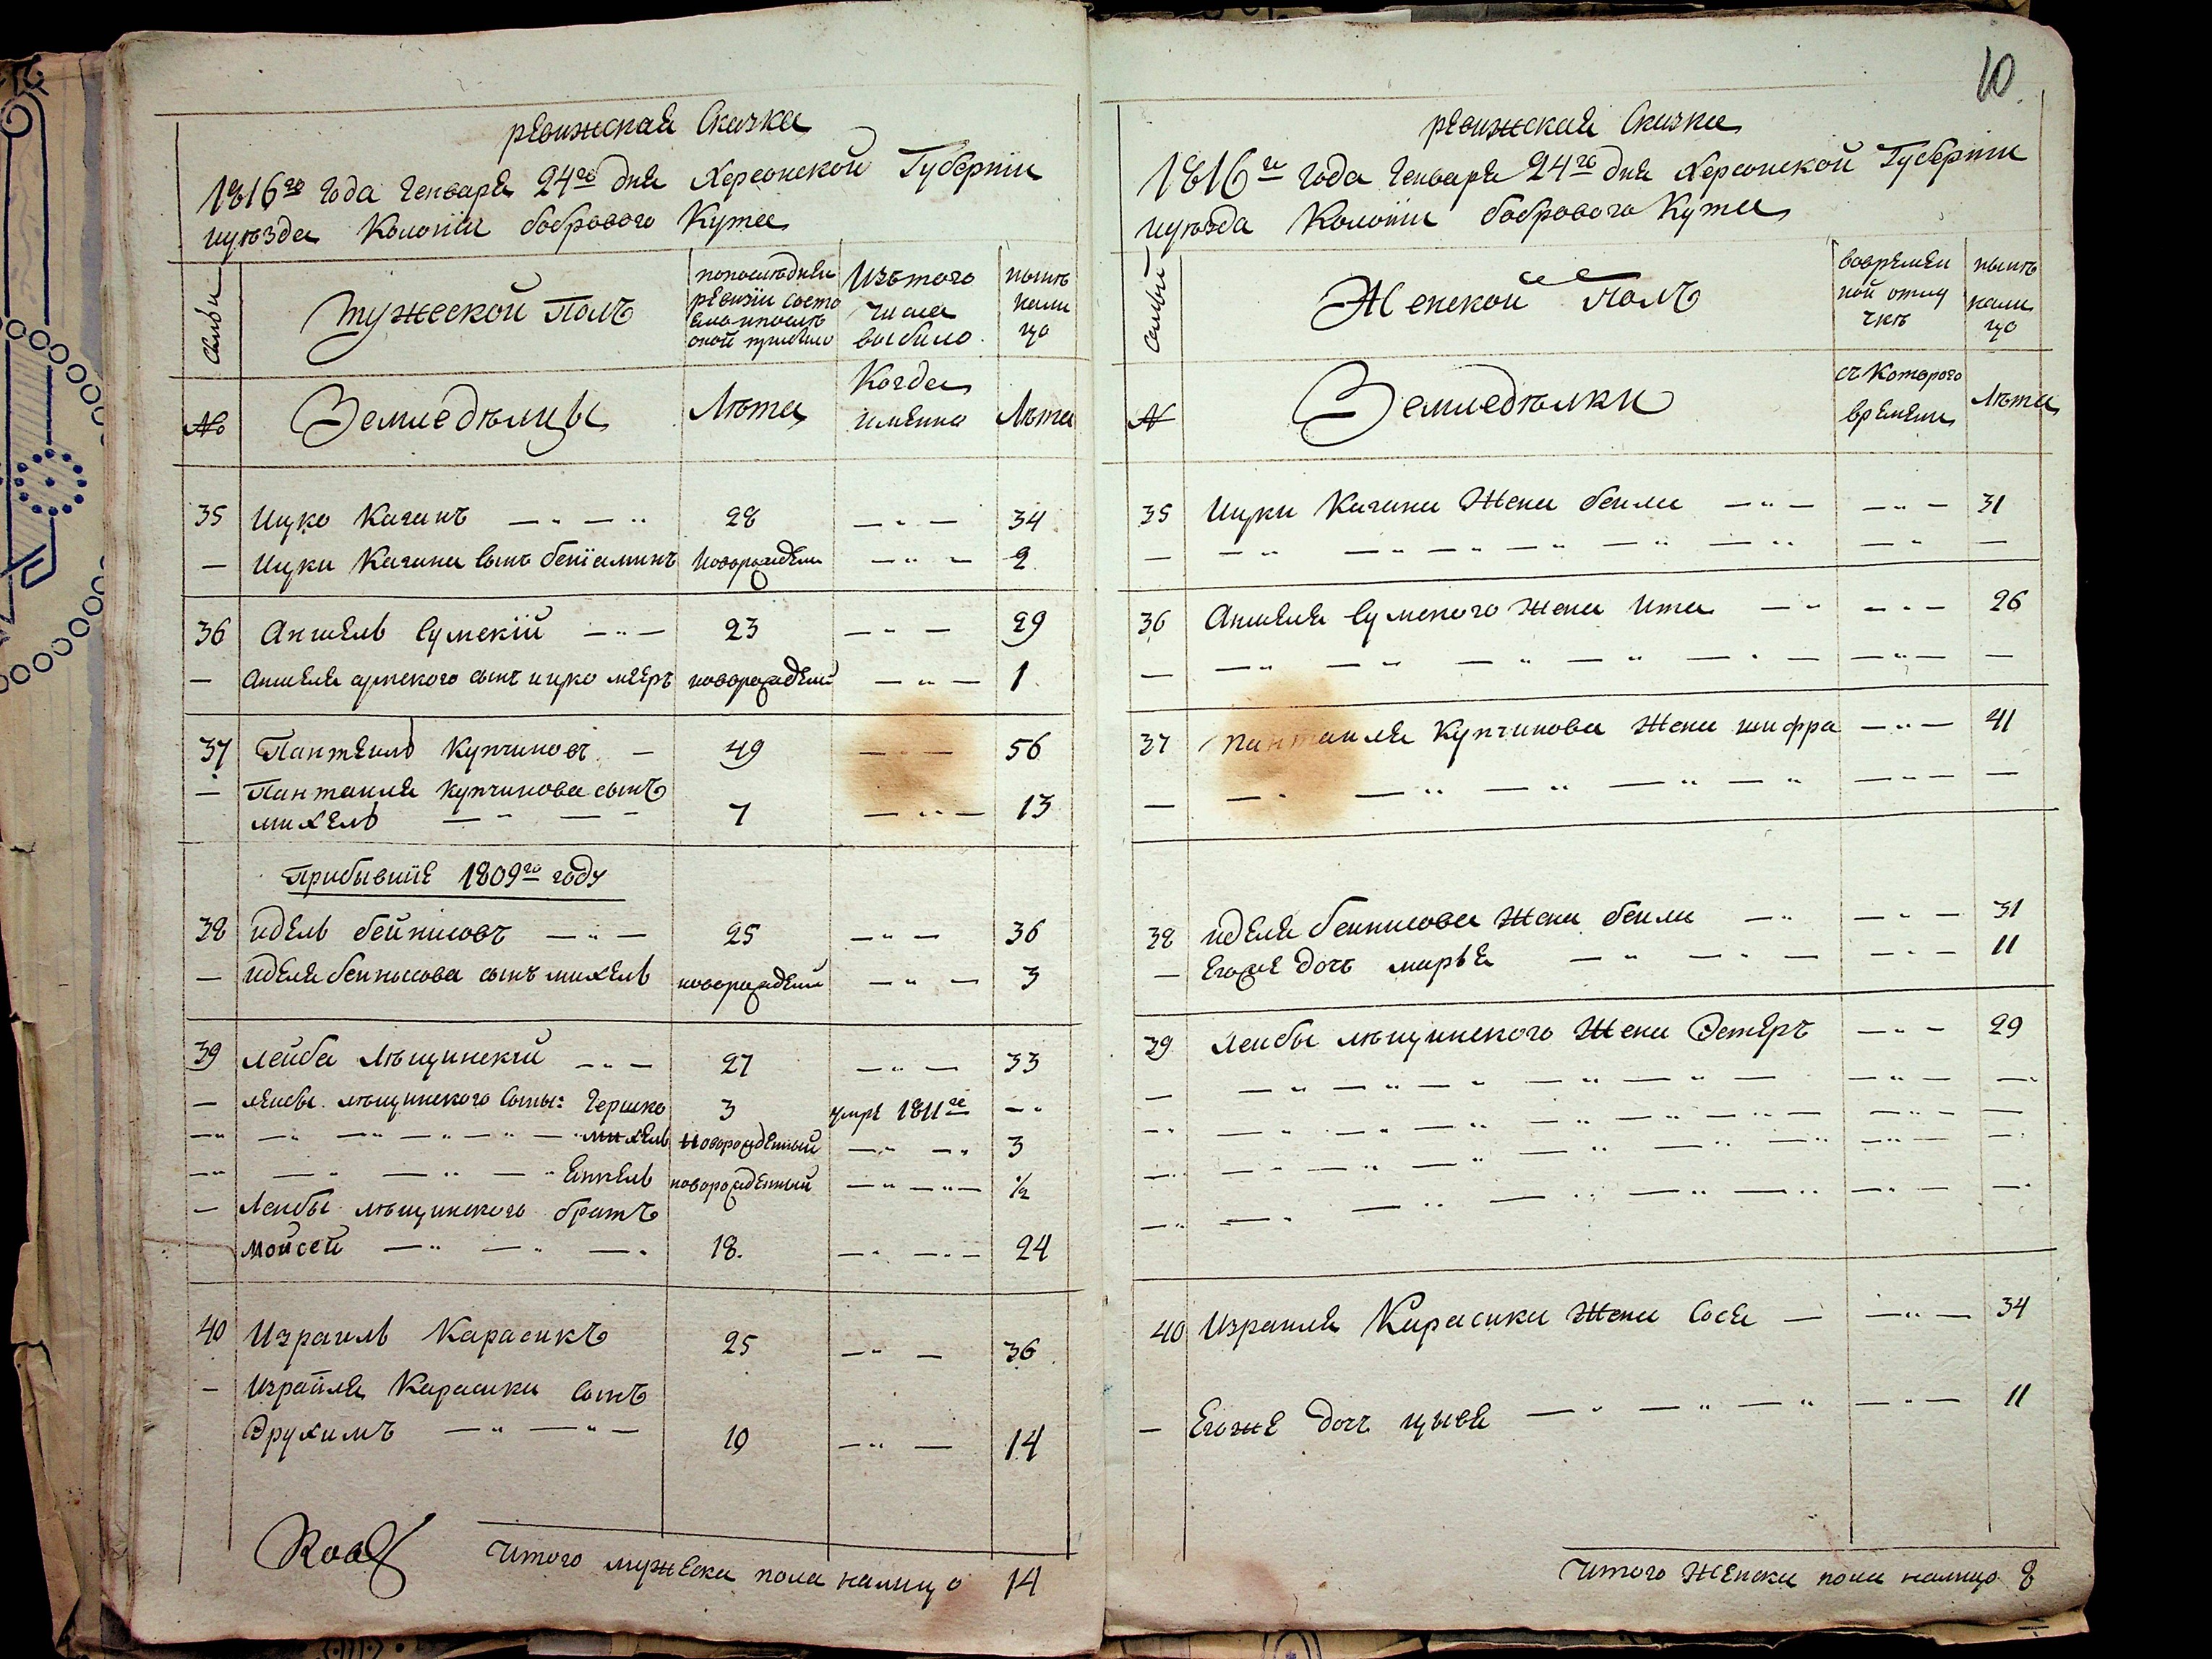 10
ревижская Сказка
1816го года Генваря 24го дня Херсонской Губернии
иуѣзда Колонїи бобрового Кута
Семьи
Мужеской Полъ
попоследнеи ревизїи состояло ипослѣ оной прибыло
Изътого числа выбыло
нынѣ налицо
№
Земледѣлцы
Лѣта
Когда имянно
Лѣта
35 Ицко Каганъ 28 34
Ицки Кагана сынъ бенїаминъ новорожден 2
36 Аншель Сумскїй 23 29
Аншеля сумского сынъ ицко мееръ новорожденй 1
37 Пантеиль Купчиновъ 49 56
Пантаиля купчинова сынъ
михель 7 13
Прибывшїе 1809го году
38 идель бейнисовъ 25 36
иделя бейнисова сынъ михель новорожденй 3
39 лейба Лѣщинскїй 27 33
лейбы лѣщинского сыны: Гершко 3 умре 1811го
михель новорожденный 3
новорожденный ½
Лейбы лѣщинского братъ
мойсей 18. 24
40 Израиль Карасикъ 25 36
Израйля Карасика сынъ
Эрухимъ 10 14
Итого мужеска пола налицо 14
ревижская Сказка
1816го года Генваря 24го дня Херсонской Губернии
иуѣзда Колонїи бобрового Кута
Семьи
Женской Полъ
вовременной отлучкѣ
нынѣ налицо
№
Земледѣлки
съ Которого времени
Лѣта
35 Ицки Кагана Жена беила 31
36 Аншеля Сумского Жена Ита 26
37 Пантаиля Купчинова Жена шифра 41
38 иделя беинисова Жена беила 31
Егоже дочь марья 11
39 Леибы лѣщинского Жена Эстеръ 29
40 Израиля Карасика Жена Сося 34
Егоже дочь цывя 11
Итого Женска пола налицо 8